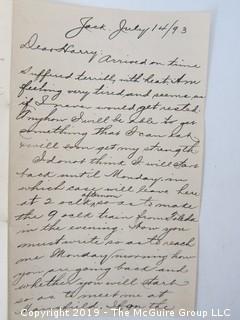 Jack. July 14/93
Dear Harry: Arrived on time
suffered terribly with heat. Am
feeling very tired and seems as
if I never would get rested.
Anyhow I will be able to get
something that I can eat
& will soon get my strength.
I do not think I will start
back until Monday, in
which case will leave here
afternoon
at 2 oclk, so as to make
the 9 oclk train from
in the evening. Now you
must write so as to reach
me Monday morning how
you are going back and
whether you will start
so as to meet me at
on the
Copyright 2019 - The McGuire Group